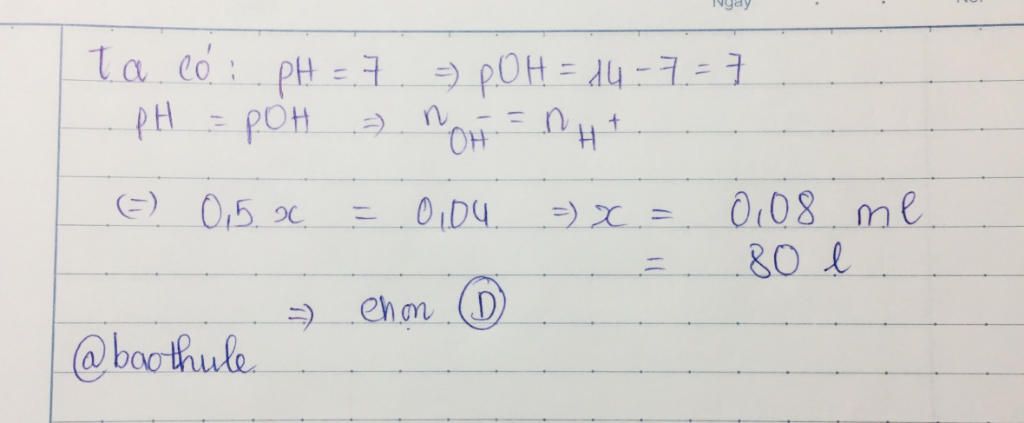 Ngày
Ta có: pH = 7 => pOH = 14 - 7 = 7
pH = pOH => n OH⁻ = n H⁺
(=) 0,5 x = 0,04 => x = 0,08 ml
= 80 l
=> chọn D
@baothule